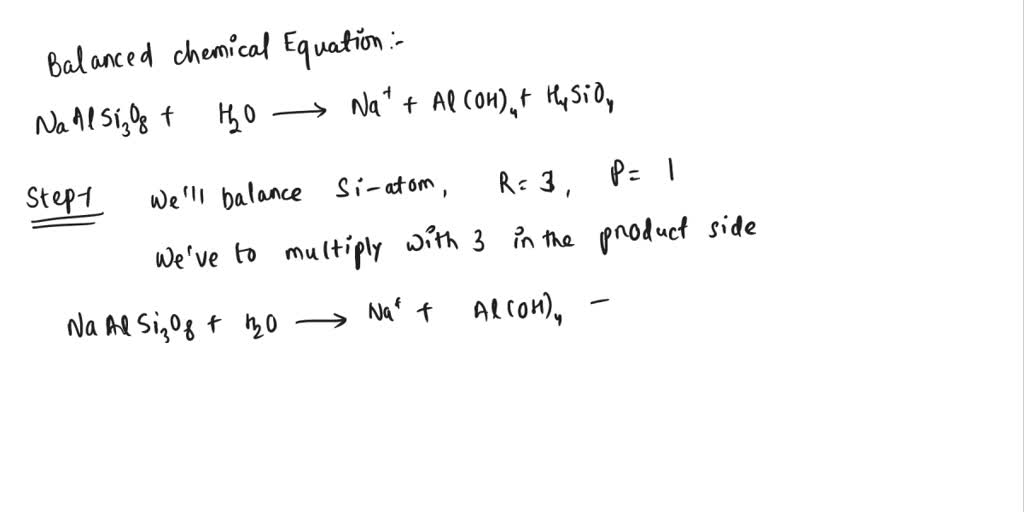 Balanced chemical Equation:-
NaAlSi₃O₈ + H₂O ⟶ Na⁺ + Al(OH)₄ + H₄SiO₄
Step-1 We'll balance Si-atom, R=3, P=1
We've to multiply with 3 in the product side
NaAlSi₃O₈ + H₂O ⟶ Na⁺ + Al(OH)₄ –